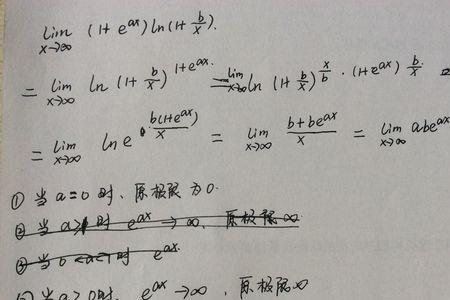 lim x→∞ (1+e^{ax}) ln(1+\frac{b}{x}).
= lim x→∞ ln(1+\frac{b}{x})^{1+e^{ax}} = lim x→∞ ln(1+\frac{b}{x})^{\frac{x}{b}·(1+e^{ax})\frac{b}{x}}
= lim x→∞ ln e^{\frac{b(1+e^{ax})}{x}} = lim x→∞ \frac{b+be^{ax}}{x} = lim x→∞ abe^{ax}
① 当 a=0 时、原极限为0.
② 当 a>1时 e^{ax}→∞, 原极限∞
③ 当 0<a<1时 e^{ax}
当 a>0时、 e^{ax}→∞, 原极限∞